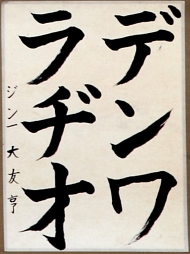 デンワ
ラヂオ
ジンー 大友亨